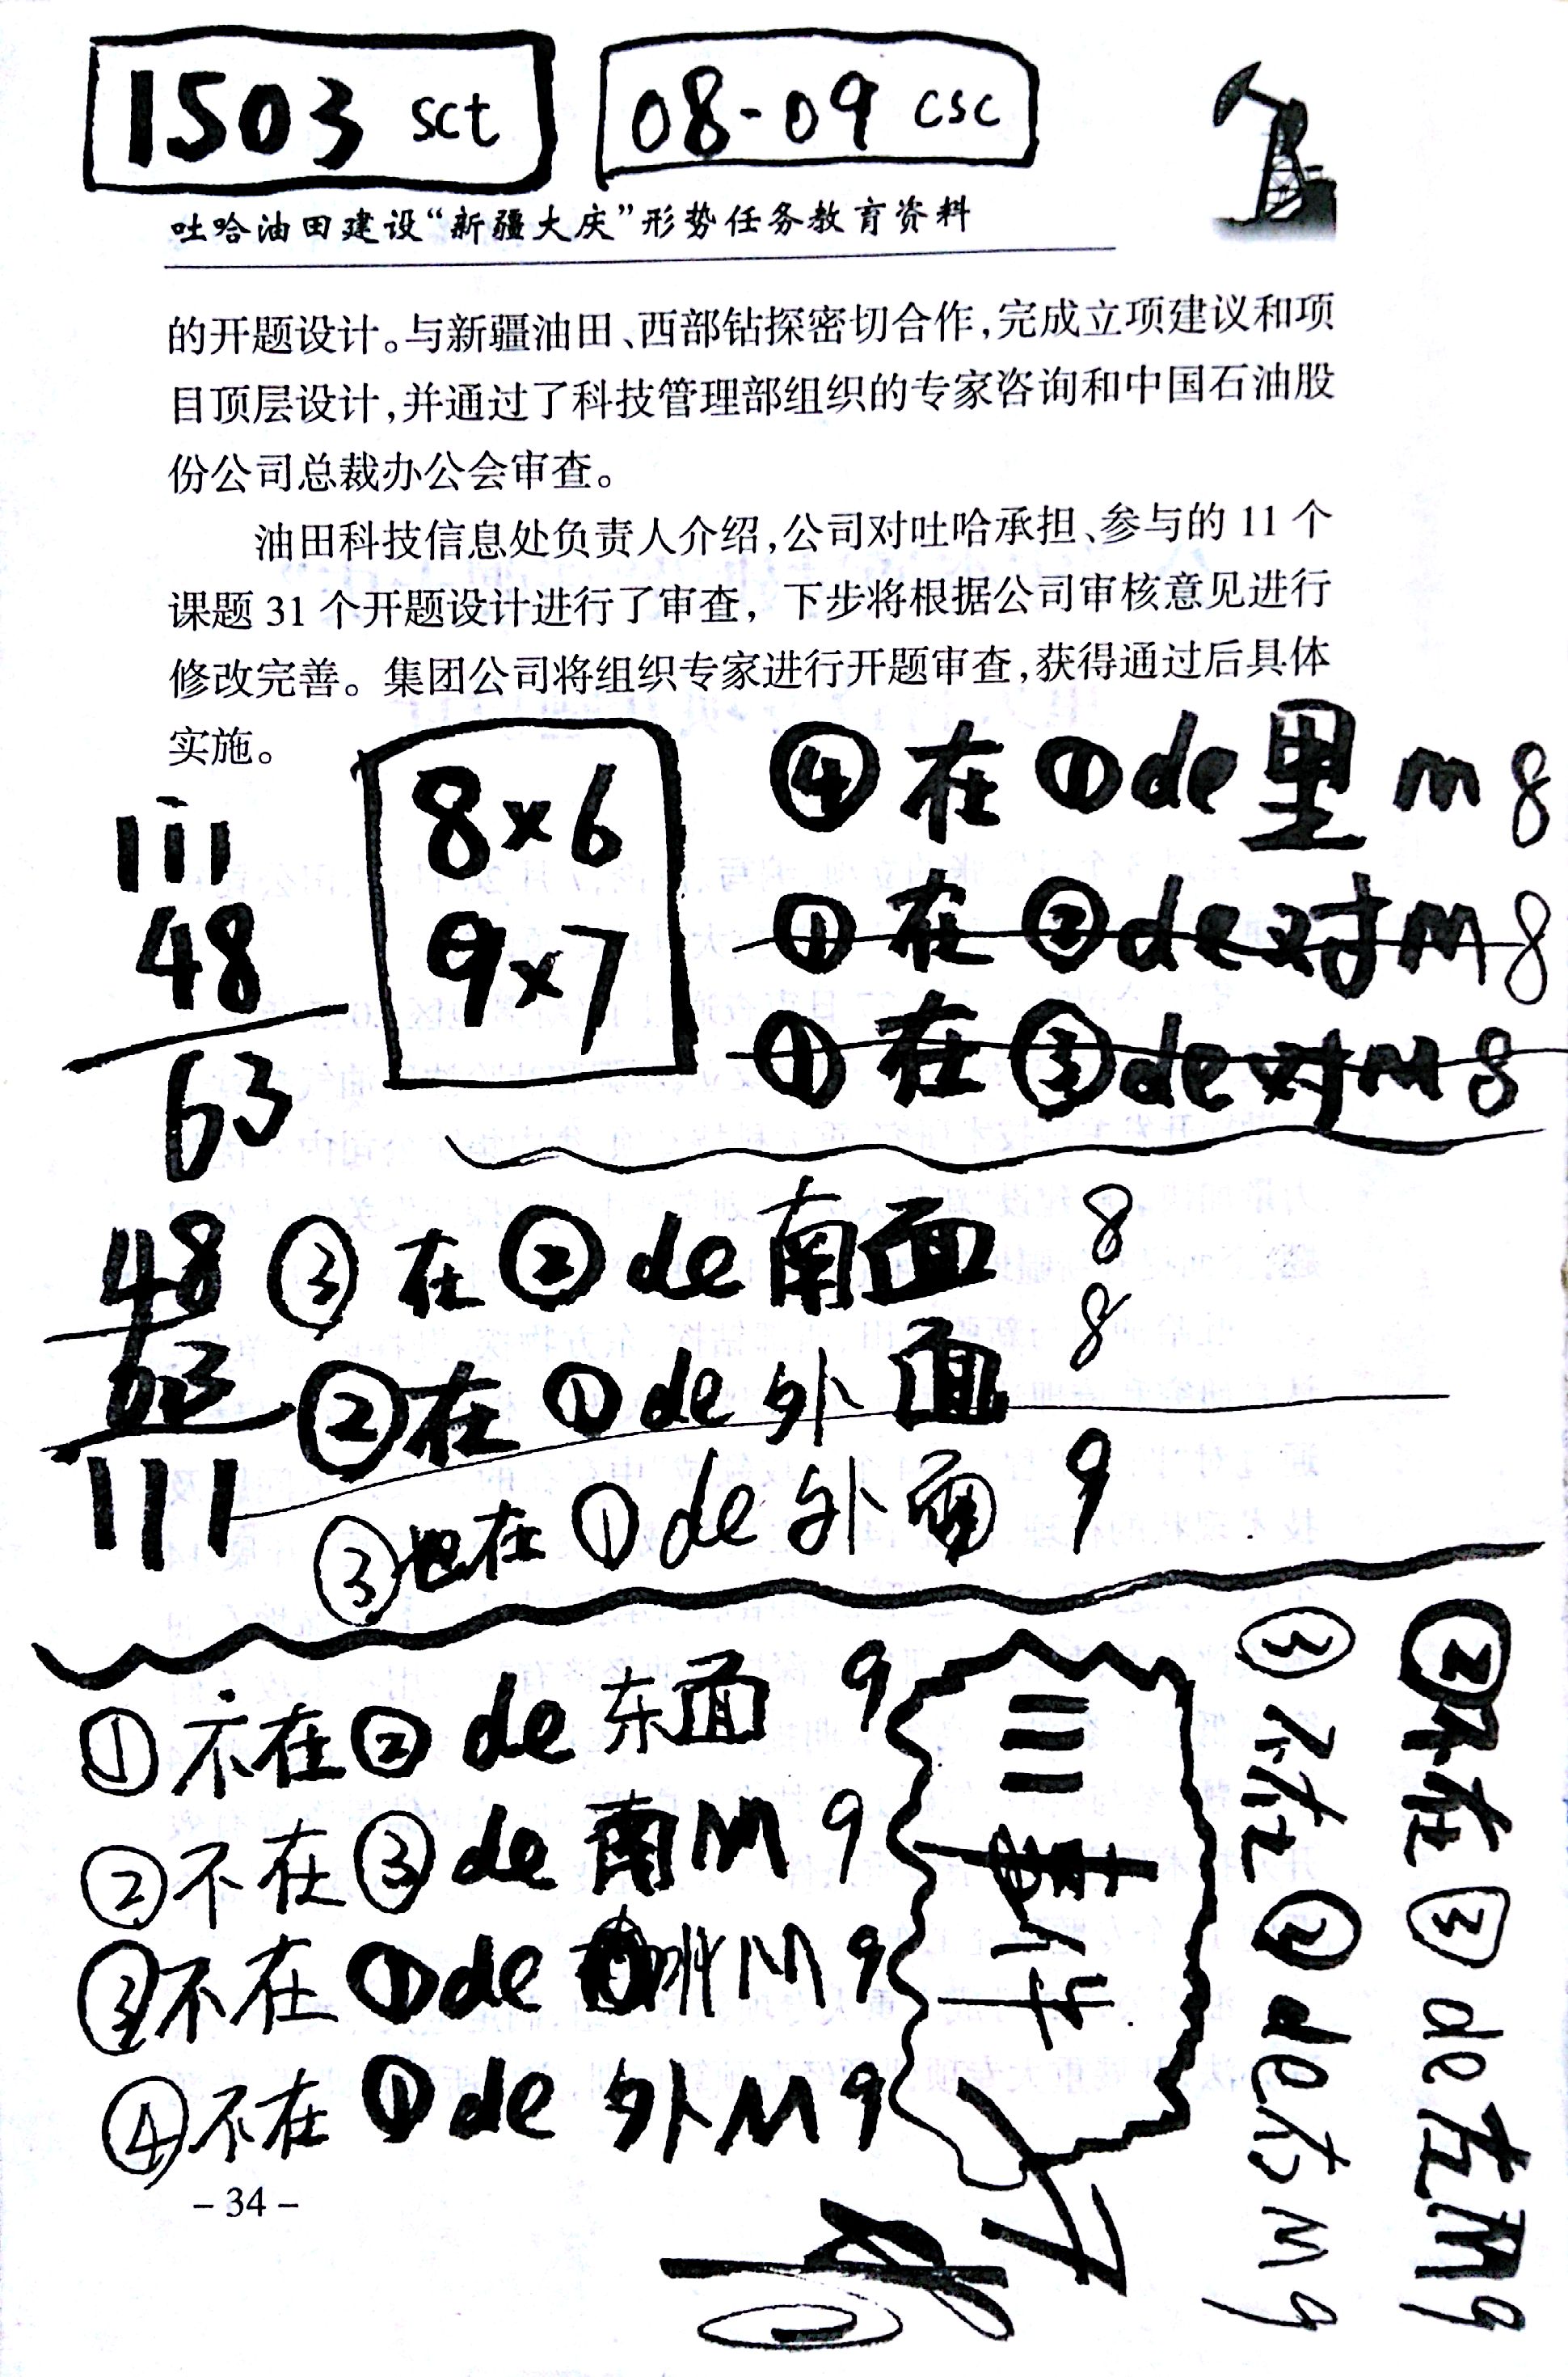 1503 sct 08-09 csc
吐哈油田建设“新疆大庆”形势任务教育资料
的开题设计。与新疆油田、西部钻探密切合作,完成立项建议和项
目顶层设计,并通过了科技管理部组织的专家咨询和中国石油股
份公司总裁办公会审查。
油田科技信息处负责人介绍,公司对吐哈承担、参与的 11 个
课题 31 个开题设计进行了审查，下步将根据公司审核意见进行
修改完善。集团公司将组织专家进行开题审查,获得通过后具体
实施。
111
48
63
8×6
9×7
④在①de里m 8
①在②de对m 8
①在③de对m 8
48
63
111
③在②de南面 8
②在①de外面 8
③也在①de外面 9
①不在②de东面 9
②不在③de南M 9
③不在①de M 9
④不在①de外M 9
③不在②de右M 9
②不在③de左M 9
- 34 -